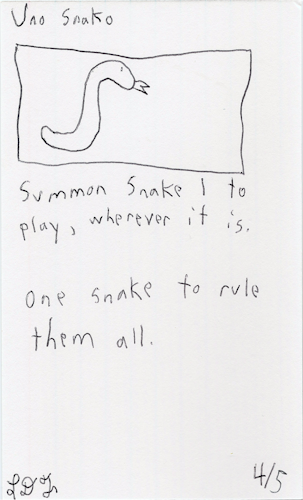 Uno Snako
Summon Snake 1 to
play, wherever it is.
One snake to rule
them all.
4/5